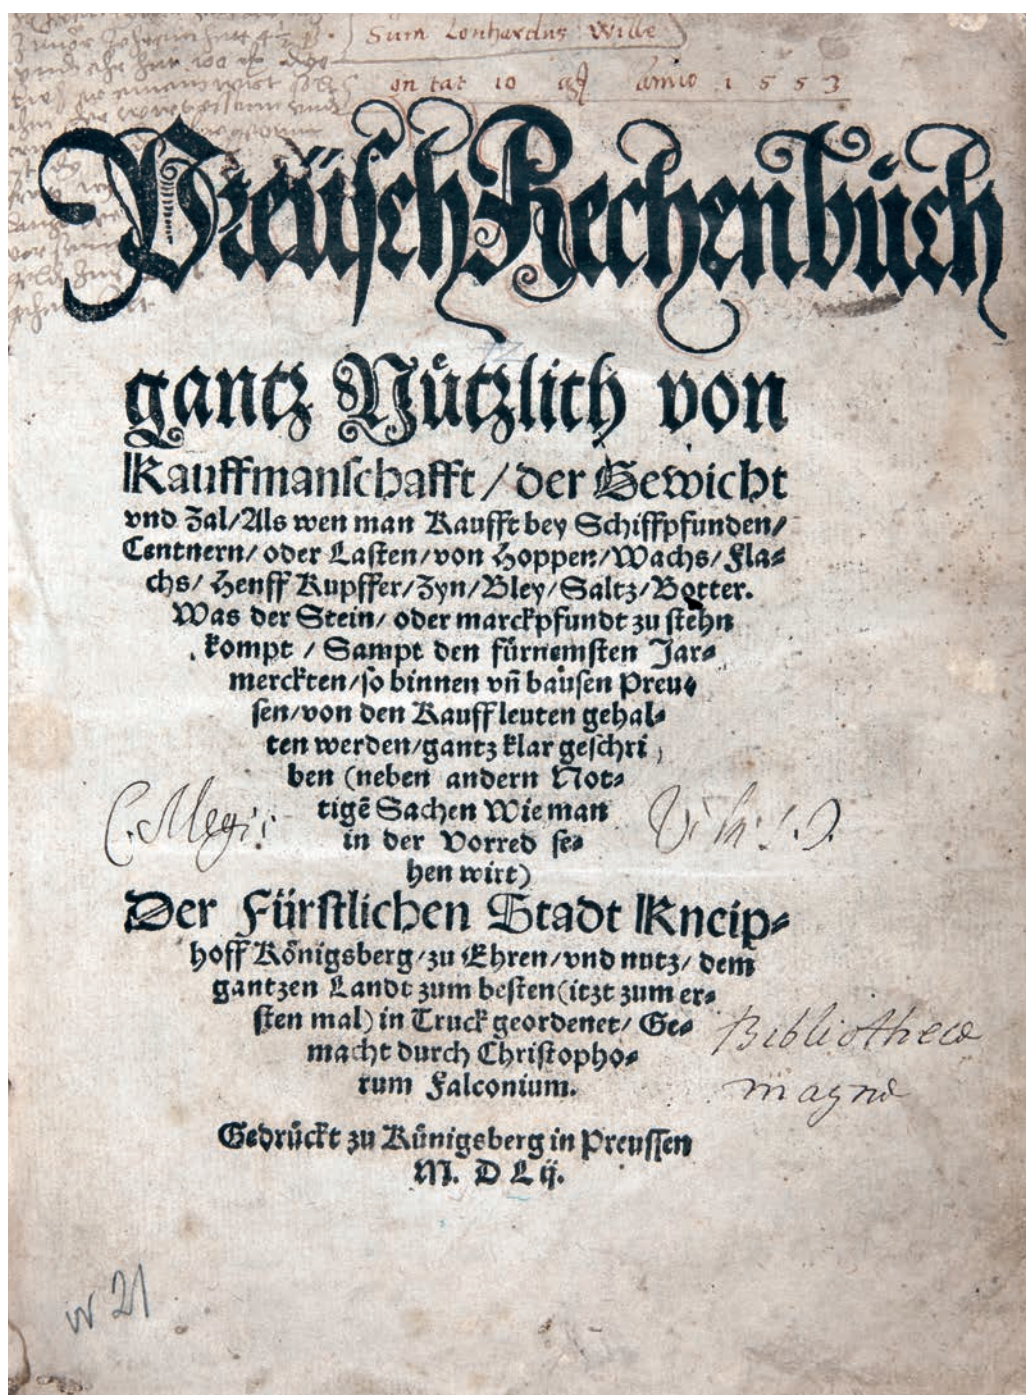 Sum Lonhardus Wille
1 5 5 3
Preüsch Rechenbüch
gantz Nützlich von
Kauffmanschafft / der Gewicht
vnd Zal/Als wen man Kaufft bey Schiffpfunden/
Centnern/ oder Lasten/von Hoppen/Wachs/Fla⸗
chs/ Henff Kupffer/Zyn/Bley/Saltz/Botter.
Was der Stein/ oder marckpfundt zu stehn
kompt / Sampt den fürnemsten Jar⸗
merckten/so binnen vñ baüsen Preu⸗
sen/von den Kauffleuten gehal⸗
ten werden/gantz klar geschri
ben (neben andern Not⸗
tigẽ Sachen Wie man
in der Vorred se⸗
hen wirt)
Der Fürstlichen Stadt Kneip⸗
hoff Königsberg/zu Ehren/vnd nutz/ dem
gantzen Landt zum besten(itzt zum er⸗
sten mal) in Truck geordenet/ Ge⸗
macht durch Christopho⸗
rum Falconium.
Bibliotheca
magna
Gedrückt zu Künigsberg in Preussen
M. D Lij.
21